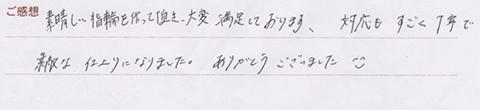 ご感想 素晴しい指輪を作って頂き、大変満足しております、 対応もすごく丁寧で
素敵な仕上りになりました。 ありがとうございました